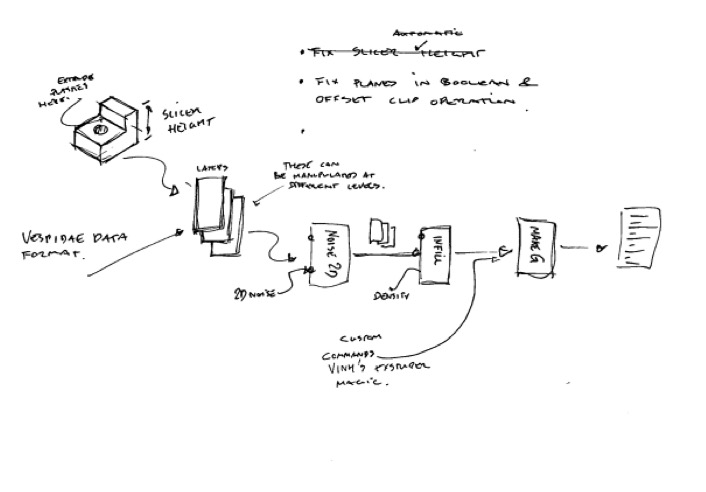 AUTOMATIC
• FIX SLICER HEIGHT
• FIX PLANES IN BOOLEAN &
OFFSET CLIP OPERATION.
EXTRUDE
HERE.
SLICER
HEIGHT
LAYERS
THESE CAN
BE MANIPULATED AT
DIFFERENT LEVELS.
VESPIDAE DATA
FORMAT.
NOISE 2D
2D NOISE
INFILL
DENSITY
MAKE G
CUSTOM
COMMANDS
VINH'S EXTRUDER
MAGIC.